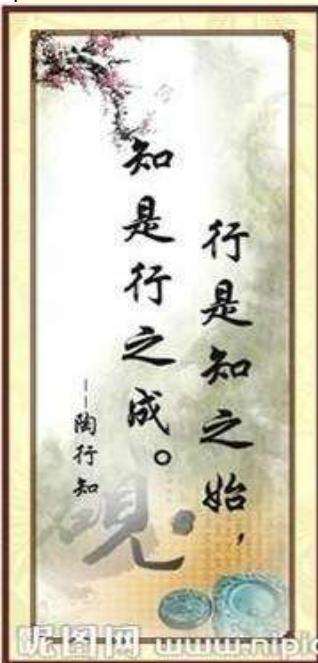 行是知之始，
知是行之成。
——陶行知
砚
昵图网 www.nipic